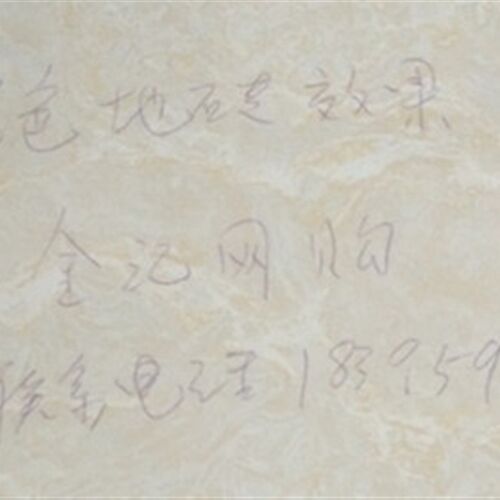 色地砖效果
金记网购
联系电话183959